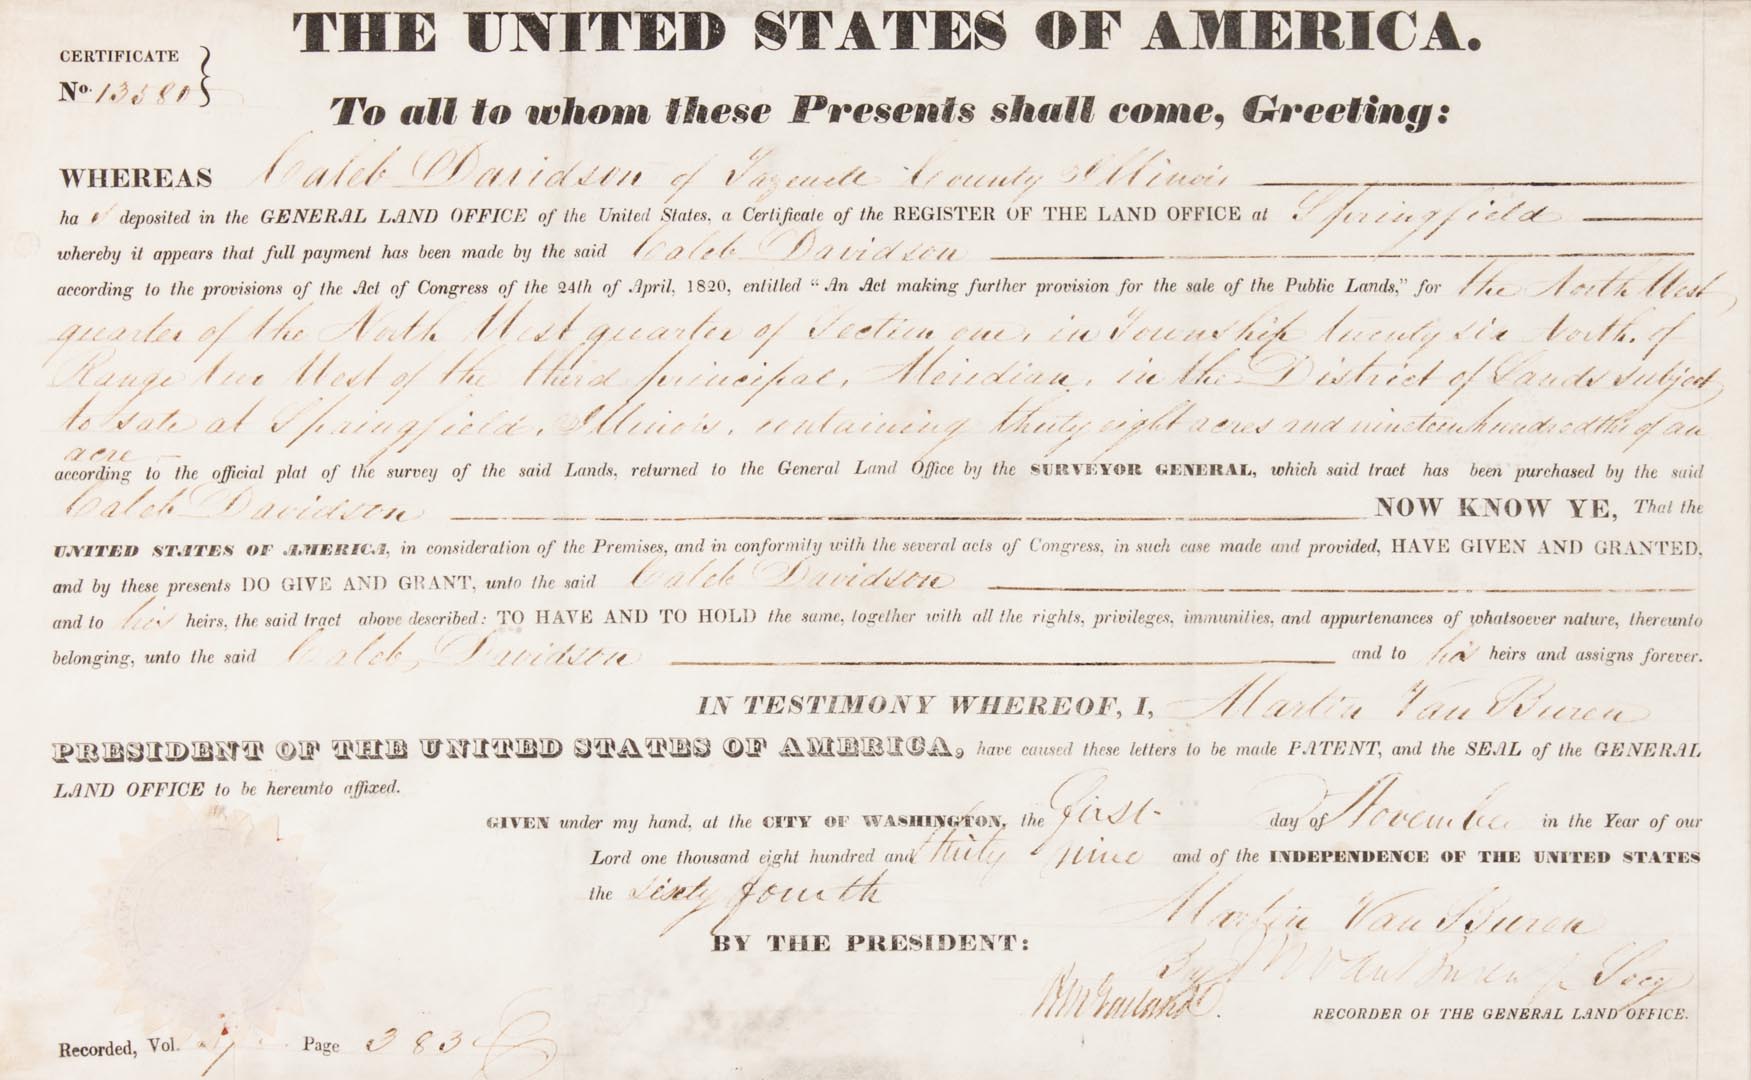 THE UNITED STATES OF AMERICA.
CERTIFICATE
No.
To all to whom these Presents shall come, Greeting:
WHEREAS Caleb Davidson of Tazewell County Illinois
ha s deposited in the GENERAL LAND OFFICE of the United States, a Certificate of the REGISTER OF THE LAND OFFICE at Springfield
whereby it appears that full payment has been made by the said Caleb Davidson
according to the provisions of the Act of Congress of the 24th of April, 1820, entitled “An Act making further provision for the sale of the Public Lands,” for the North West
quarter of the North West quarter of Section one, in Township twenty six North, of
Range two West of the third principal, Meridian, in the District of Lands subject
to sale at Springfield, Illinois, containing thirty eight acres and nineteen hundredths of an
acre
according to the official plat of the survey of the said Lands, returned to the General Land Office by the SURVEYOR GENERAL, which said tract has been purchased by the said
Caleb Davidson NOW KNOW YE, That the
UNITED STATES OF AMERICA, in consideration of the Premises, and in conformity with the several acts of Congress, in such case made and provided, HAVE GIVEN AND GRANTED,
and by these presents DO GIVE AND GRANT, unto the said Caleb Davidson
and to his heirs, the said tract above described: TO HAVE AND TO HOLD the same, together with all the rights, privileges, immunities, and appurtenances of whatsoever nature, thereunto
belonging, unto the said Caleb Davidson and to his heirs and assigns forever.
IN TESTIMONY WHEREOF, I, Martin Van Buren
PRESIDENT OF THE UNITED STATES OF AMERICA, have caused these letters to be made PATENT, and the SEAL of the GENERAL
LAND OFFICE to be hereunto affixed.
GIVEN under my hand, at the CITY OF WASHINGTON, the first day of November in the Year of our
Lord one thousand eight hundred and thirty nine and of the INDEPENDENCE OF THE UNITED STATES
the sixty fourth
Martin Van Buren
BY THE PRESIDENT:
By M Van Buren jr Secy
RECORDER OF THE GENERAL LAND OFFICE.
Recorded, Vol. Page 383